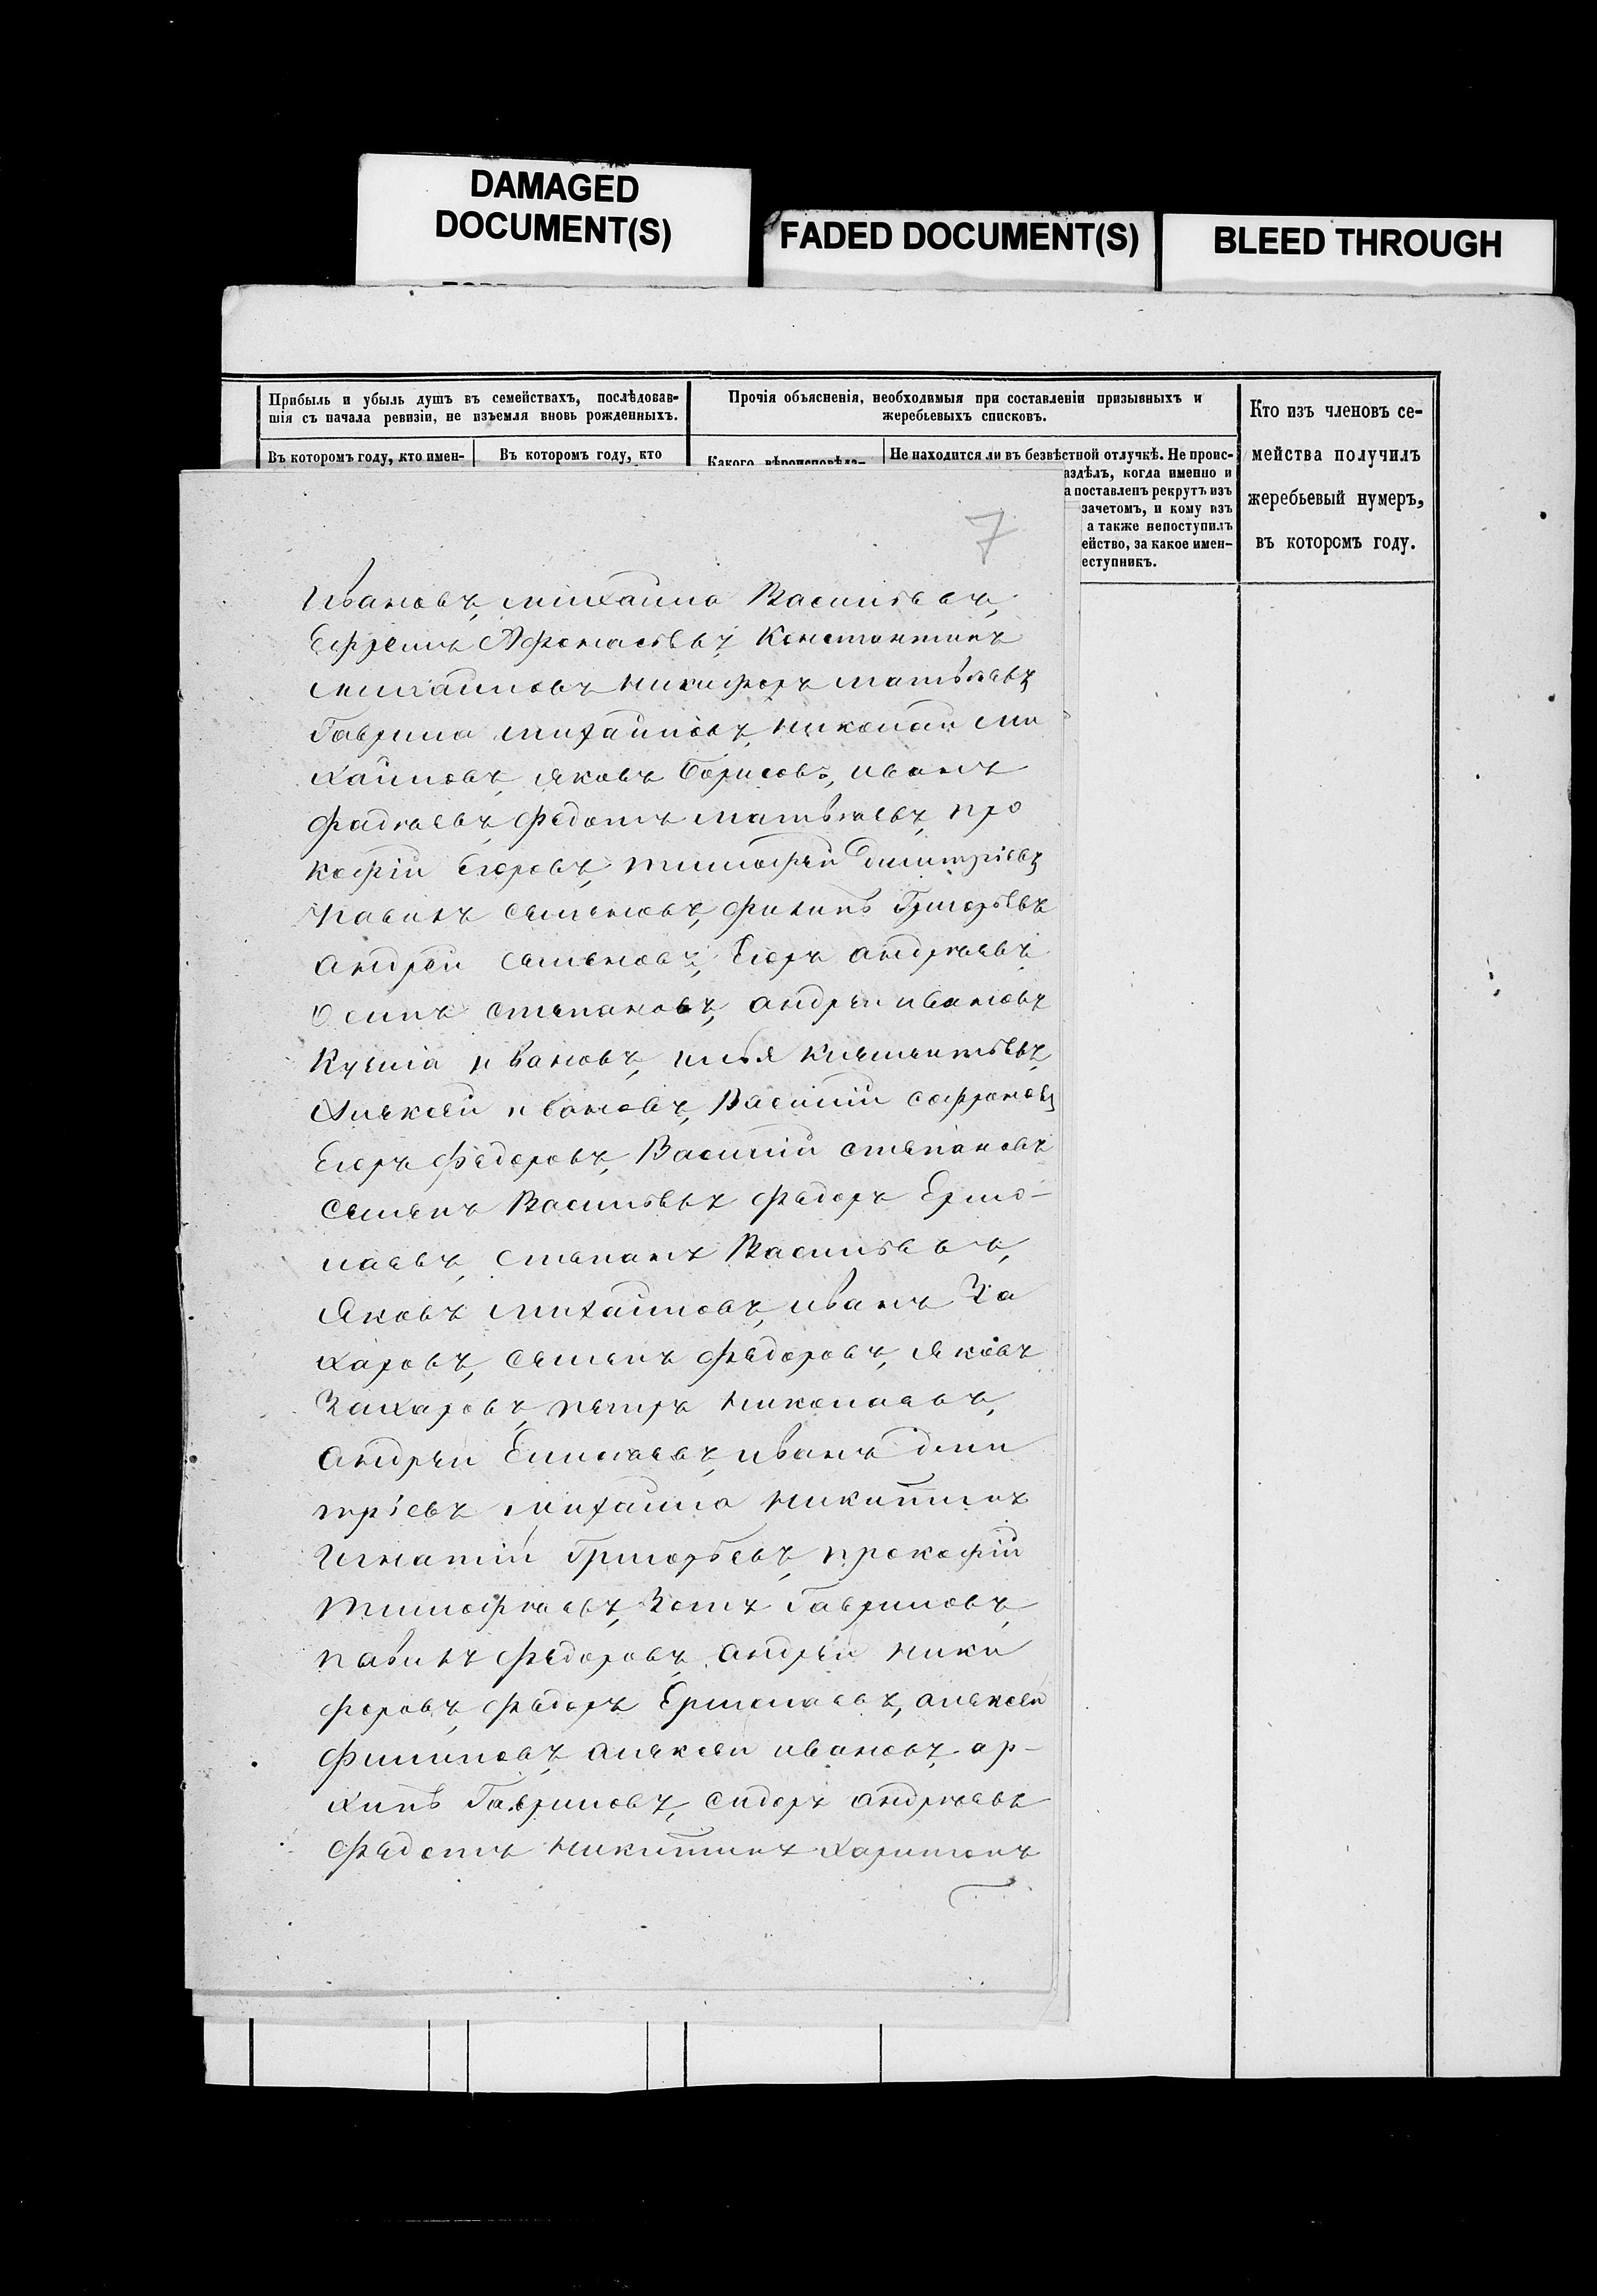 DAMAGED
DOCUMENT(S)
FADED DOCUMENT(S)
BLEED THROUGH
Прибыль и убыль душъ въ семействахъ, послѣдовав-
шія съ начала ревизіи, не изъемля вновь рожденныхъ.
Въ которомъ году, кто имен-
Въ которомъ году, кто
Прочія объясненія, необходимыя при составленіи призывныхъ и
жеребьевыхъ списковъ.
Какого вѣроисповѣда-
Не находится ли въ безвѣстной отлучкѣ. Не проис-
аздѣлъ, когда именно и
а поставленъ рекрутъ изъ
зачетомъ, и кому изъ
а также непоступилъ
ейство, за какое имен-
еступникъ.
Кто изъ членовъ се-
мейства получилъ
жеребьевый нумеръ,
въ которомъ году.
7
Ивановъ, михаила Васильевъ,
Ефремъ Афонасьевъ, Константинъ
михаиловъ никифоръ матвѣевъ
Гаврила михаиловъ, николаи ми
хаиловъ, яковъ Борисовъ, иванъ
фадѣевъ, федотъ матвѣевъ, про
кофіи Егоровъ, тимофѣи димитріевъ
павилъ семеновъ, филипъ Григорьевъ
андреи семеновъ, Егоръ андрѣевъ
Осипъ степановъ, андреи ивановъ
Кузма ивановъ, илья клементьевъ,
Алексеи ивановъ, Василіи софроновъ
Егоръ федоровъ, Василіи степановъ
семенъ Васильевъ федоръ Ермо-
лаевъ, степанъ Васильевъ,
Яковъ михаиловъ, иванъ За
харовъ, семенъ федоровъ, яковъ
Захаровъ, петръ николаевъ,
андреи Елисѣевъ, иванъ дми
тріевъ михаила никитинъ
Игнатіи Григорьевъ, прокофіи
тимофѣевъ, Зотъ Гавриловъ,
павилъ федоровъ, андреи ники
форовъ, федоръ Ермолаевъ, алексеи
филиповъ, алексеи ивановъ, ар-
хипъ Гавриловъ, сидоръ андрѣевъ
федотъ никитинъ харитонъ